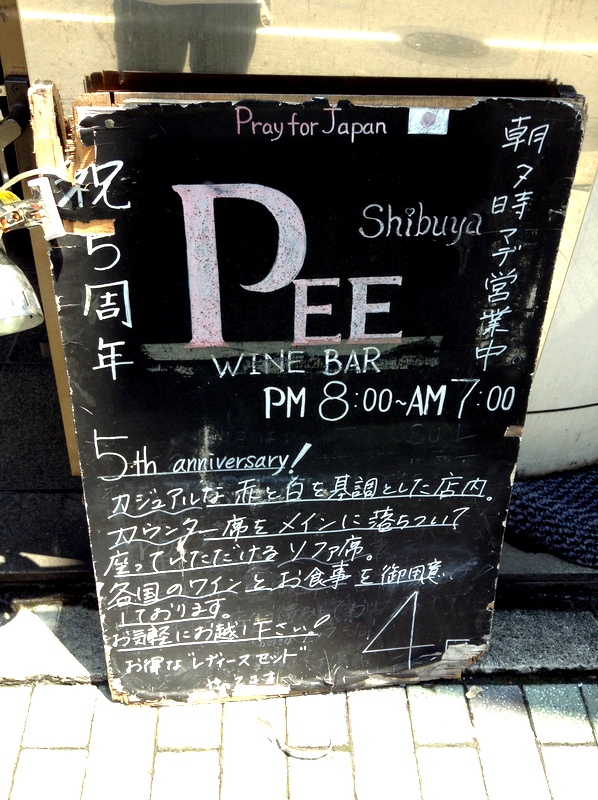 Pray for Japan
祝5周年
Shibuya
PEE
WINE BAR
PM 8:00~AM 7:00
朝7時マデ営業中。
5th anniversary!
カジュアルな 赤と白を基調とした店内。
カウンター席をメインに落ちついて
座っていただける ソファ席。
各国のワインとお食事を御用意
しております。
お気軽にお越し下さい!
お得な"レディースセット"
4F